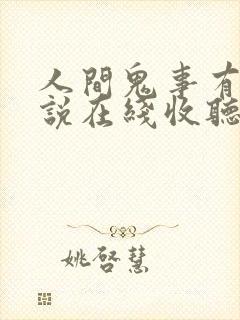 人間鬼事有
說在綫收聽
姚啓慧